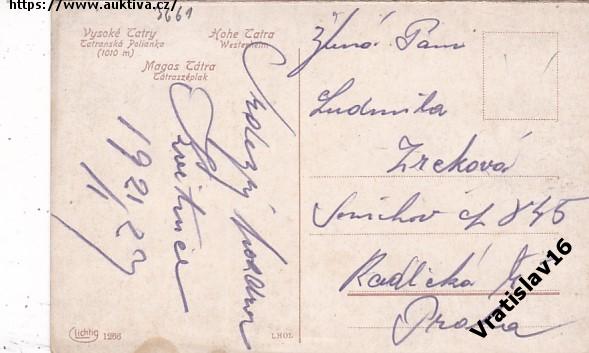 https://www.auktiva.cz/
3661
Vysoké Tatry
Tatranská Polianka
(1010 m)
Hohe Tatra
Westerheim
Magas Tátra
Tátraszéplak
srdečný pozdrav
1921
Žená Paní
Ludmila
Zrcková
Smíchov čp 845
Radlická
Praha
Lichtig 1266
LHOL
Vratislav16